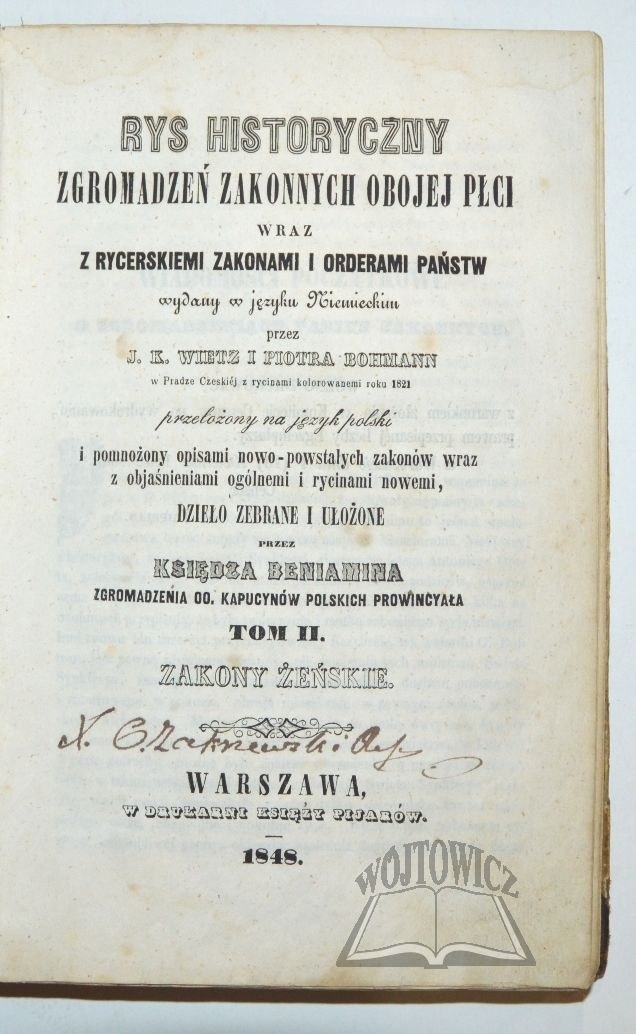 RYS HISTORYCZNY
ZGROMADZEŃ ZAKONNYCH OBOJEJ PŁCI
WRAZ
Z RYCERSKIEMI ZAKONAMI I ORDERAMI PAŃSTW
wydany w języku Niemieckim
przez
J. K. WIETZ I PIOTRA BOHMANN
w Pradze Czeskiéj z rycinami kolorowanemi roku 1821
przełożony na język polski
i pomnożony opisami nowo-powstałych zakonów wraz
z objaśnieniami ogólnemi i rycinami nowemi,
DZIEŁO ZEBRANE I UŁOŻONE
PRZEZ
KSIĘDZA BENIAMINA
ZGROMADZENIA OO. KAPUCYNÓW POLSKICH PROWINCYAŁA
TOM II.
ZAKONY ŻEŃSKIE.
X. O. Zakrzewski
WARSZAWA,
W DRUKARNI KSIĘŻY PIJARÓW.
1848.
WÓJTOWICZ